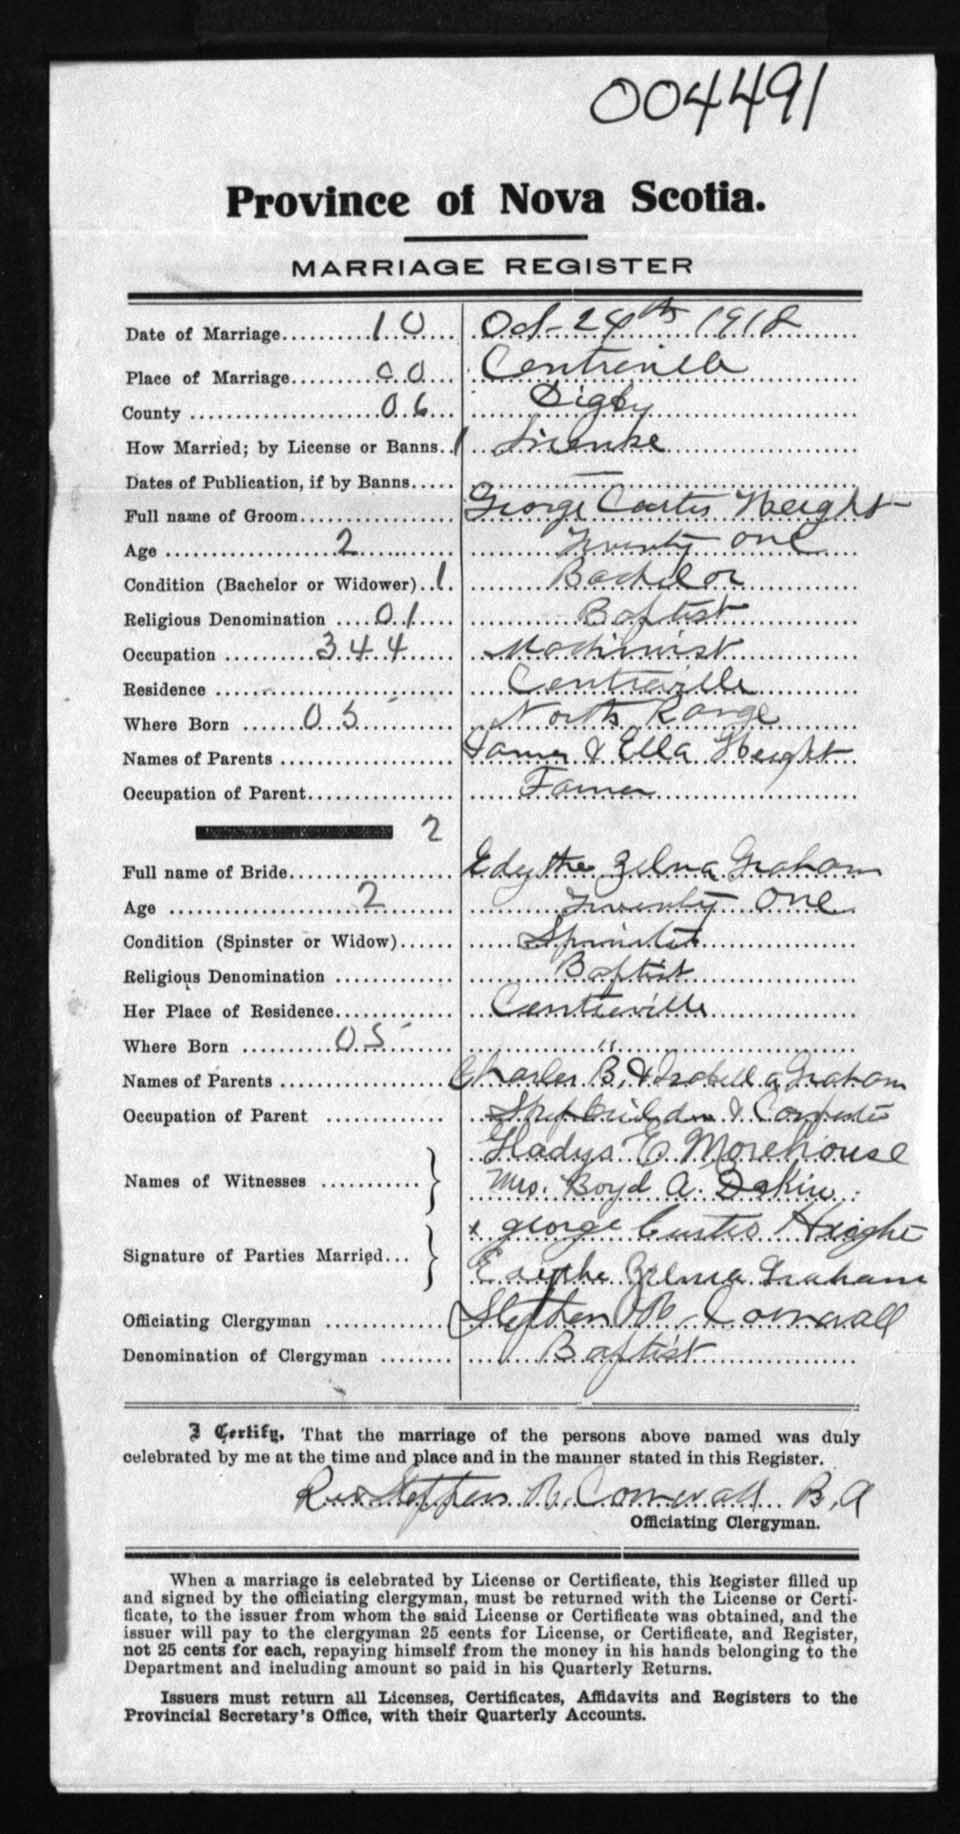 004491
Province of Nova Scotia.
MARRIAGE REGISTER
Date of Marriage..........10... Oct- 24th 1918
Place of Marriage..........00... Centreville
County ..........06... Digby
How Married; by License or Banns..1 License
Dates of Publication, if by Banns..... —
Full name of Groom.......... George Curtis Haight
Age ..........2.......... Twenty one
Condition (Bachelor or Widower)..1. Bachelor
Religious Denomination ....01.... Baptist
Occupation ..........344..... Machinist
Residence .......... Centreville
Where Born ......05...... North Range
Names of Parents .......... James & Ella Haight
Occupation of Parent.......... Farmer
2
Full name of Bride.......... Edythe Zelma Graham
Age ..........2....... Twenty One
Condition (Spinster or Widow)...... Spinster
Religious Denomination .......... Baptist
Her Place of Residence.......... Centreville
Where Born ..........05..... "
Names of Parents .......... Charles B. & Isabella Graham
Occupation of Parent .......... Shipbuilder & Carpenter
Gladys E. Morehouse
Names of Witnesses .......... } Mrs. Boyd A. Dakin.
x George Curtis Haight
Signature of Parties Married... } Edythe Zelma Graham
Officiating Clergyman .......... Stephen R. Cornwall
Denomination of Clergyman ........ Baptist
I Certify, That the marriage of the persons above named was duly
celebrated by me at the time and place and in the manner stated in this Register.
Rev Stephen R. Cornwall B.A
Officiating Clergyman.
When a marriage is celebrated by License or Certificate, this Register filled up
and signed by the officiating clergyman, must be returned with the License or Certi-
ficate, to the issuer from whom the said License or Certificate was obtained, and the
issuer will pay to the clergyman 25 cents for License, or Certificate, and Register,
not 25 cents for each, repaying himself from the money in his hands belonging to the
Department and including amount so paid in his Quarterly Returns.
Issuers must return all Licenses, Certificates, Affidavits and Registers to the
Provincial Secretary's Office, with their Quarterly Accounts.